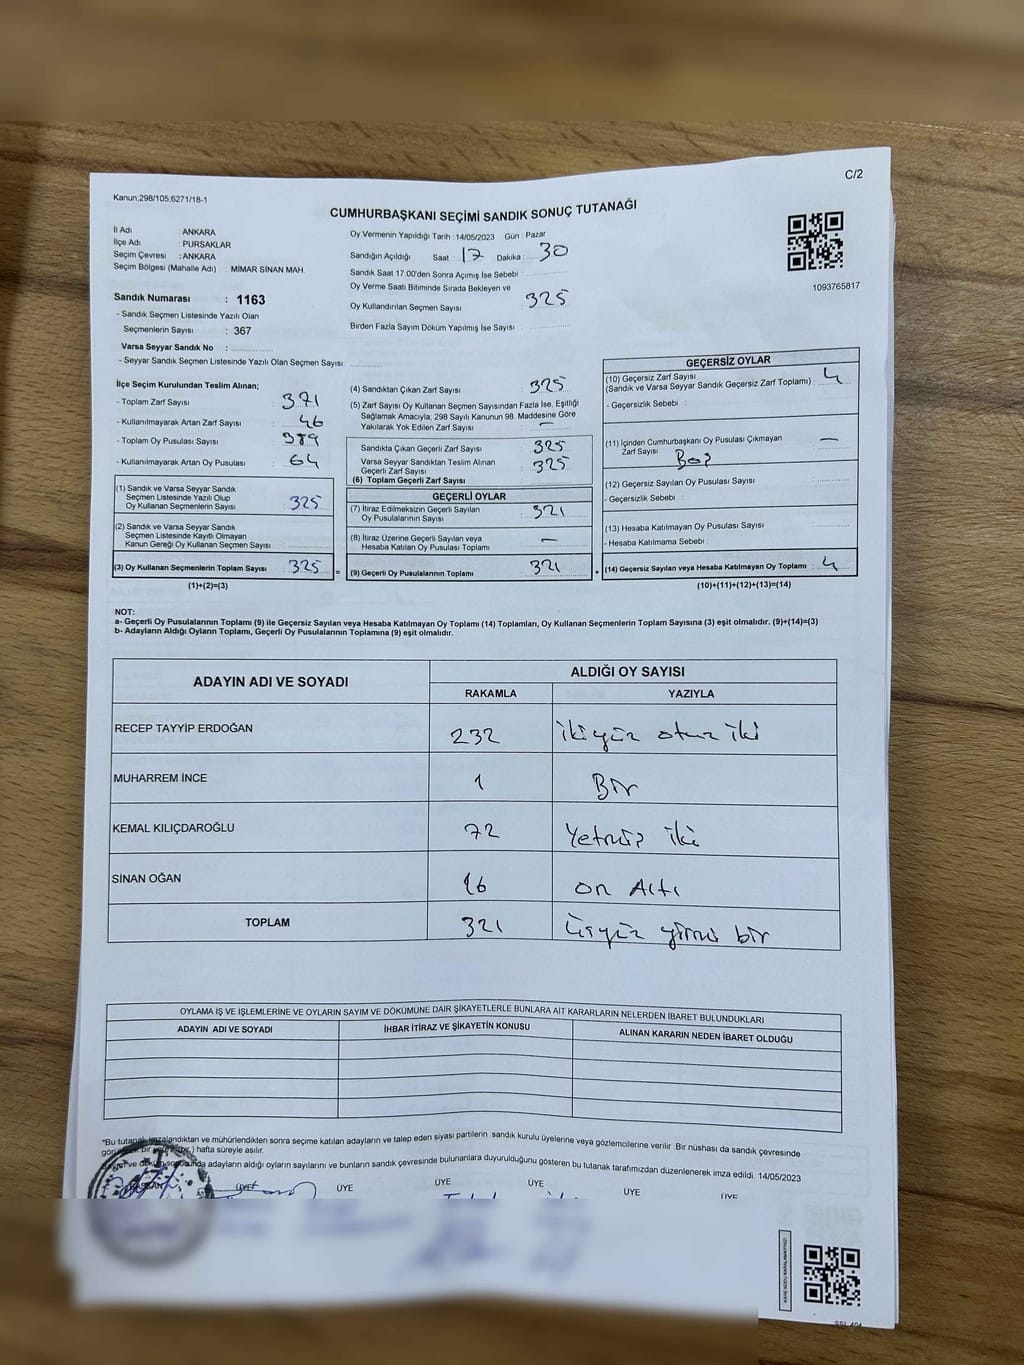 C/2
Kanun;298/105;6271/18-1
CUMHURBAŞKANI SEÇİMİ SANDIK SONUÇ TUTANAĞI
İl Adı : ANKARA
İlçe Adı : PURSAKLAR
Seçim Çevresi : ANKARA
Seçim Bölgesi (Mahalle Adı) : MİMAR SİNAN MAH.
Sandık Numarası : 1163
- Sandık Seçmen Listesinde Yazılı Olan
Seçmenlerin Sayısı : 367
Varsa Seyyar Sandık No :
- Seyyar Sandık Seçmen Listesinde Yazılı Olan Seçmen Sayısı:
Oy Vermenin Yapıldığı Tarih :14/05/2023 Gün : Pazar
Sandığın Açıldığı Saat 17 Dakika 30
Sandık Saat 17:00'den Sonra Açımış İse Sebebi :
Oy Verme Saati Bitiminde Sırada Bekleyen ve
Oy Kullandırılan Seçmen Sayısı : 325
Birden Fazla Sayım Döküm Yapılmış İse Sayısı :
1093765817
İlçe Seçim Kurulundan Teslim Alınan;
- Toplam Zarf Sayısı : 371
- Kullanılmayarak Artan Zarf Sayısı : 46
- Toplam Oy Pusulası Sayısı : 389
- Kullanılmayarak Artan Oy Pusulası : 64
(1) Sandık ve Varsa Seyyar Sandık
Seçmen Listesinde Yazılı Olup
Oy Kullanan Seçmenlerin Sayısı : 325
(2) Sandık ve Varsa Seyyar Sandık
Seçmen Listesinde Kayıtlı Olmayan
Kanun Gereği Oy Kullanan Seçmen Sayısı :
(3) Oy Kullanan Seçmenlerin Toplam Sayısı : 325
(1)+(2)=(3)
(4) Sandıktan Çıkan Zarf Sayısı : 325
(5) Zarf Sayısı Oy Kullanan Seçmen Sayısından Fazla İse, Eşitliği
Sağlamak Amacıyla; 298 Sayılı Kanunun 98. Maddesine Göre
Yakılarak Yok Edilen Zarf Sayısı : —
Sandıkta Çıkan Geçerli Zarf Sayısı : 325
Varsa Seyyar Sandıktan Teslim Alınan
Geçerli Zarf Sayısı : 325
(6) Toplam Geçerli Zarf Sayısı :
GEÇERLİ OYLAR
(7) İtiraz Edilmeksizin Geçerli Sayılan
Oy Pusulalarının Sayısı : 321
(8) İtiraz Üzerine Geçerli Sayılan veya
Hesaba Katılan Oy Pusulası Toplamı : —
= (9) Geçerli Oy Pusulalarının Toplamı : 321
GEÇERSİZ OYLAR
(10) Geçersiz Zarf Sayısı
(Sandık ve Varsa Seyyar Sandık Geçersiz Zarf Toplamı) : 4
- Geçersizlik Sebebi :
(11) İçinden Cumhurbaşkanı Oy Pusulası Çıkmayan
Zarf Sayısı : —
Boş
(12) Geçersiz Sayılan Oy Pusulası Sayısı :
- Geçersizlik Sebebi :
(13) Hesaba Katılmayan Oy Pusulası Sayısı :
- Hesaba Katılmama Sebebi :
+ (14) Geçersiz Sayılan veya Hesaba Katılmayan Oy Toplamı : 4
(10)+(11)+(12)+(13)=(14)
NOT:
a- Geçerli Oy Pusulalarının Toplamı (9) ile Geçersiz Sayılan veya Hesaba Katılmayan Oy Toplamı (14) Toplamları, Oy Kullanan Seçmenlerin Toplam Sayısına (3) eşit olmalıdır. (9)+(14)=(3)
b- Adayların Aldığı Oyların Toplamı, Geçerli Oy Pusulalarının Toplamına (9) eşit olmalıdır.
ADAYIN ADI VE SOYADI ALDIĞI OY SAYISI
RAKAMLA YAZIYLA
RECEP TAYYİP ERDOĞAN 232 ikiyüz otuz iki
MUHARREM İNCE 1 Bir
KEMAL KILIÇDAROĞLU 72 Yetmiş iki
SİNAN OĞAN 16 on Altı
TOPLAM 321 üçyüz yirmi bir
OYLAMA İŞ VE İŞLEMLERİNE VE OYLARIN SAYIM VE DÖKÜMÜNE DAİR ŞİKAYETLERLE BUNLARA AİT KARARLARIN NELERDEN İBARET BULUNDUKLARI
ADAYIN ADI VE SOYADI İHBAR İTİRAZ VE ŞİKAYETİN KONUSU ALINAN KARARIN NEDEN İBARET OLDUĞU
*Bu tutanak imzalandıktan ve mühürlendikten sonra seçime katılan adayların ve talep eden siyasi partilerin sandık kurulu üyelerine veya gözlemcilerine verilir. Bir nüshası da sandık çevresinde
bir hafta süreyle asılır.
ve döküm sonucunda adayların aldığı oyların sayılarını ve bunların sandık çevresinde bulunanlara duyurulduğunu gösteren bu tutanak tarafımızdan düzenlenerek imza edildi. 14/05/2023
BAŞKAN ÜYE ÜYE ÜYE ÜYE ÜYE ÜYE